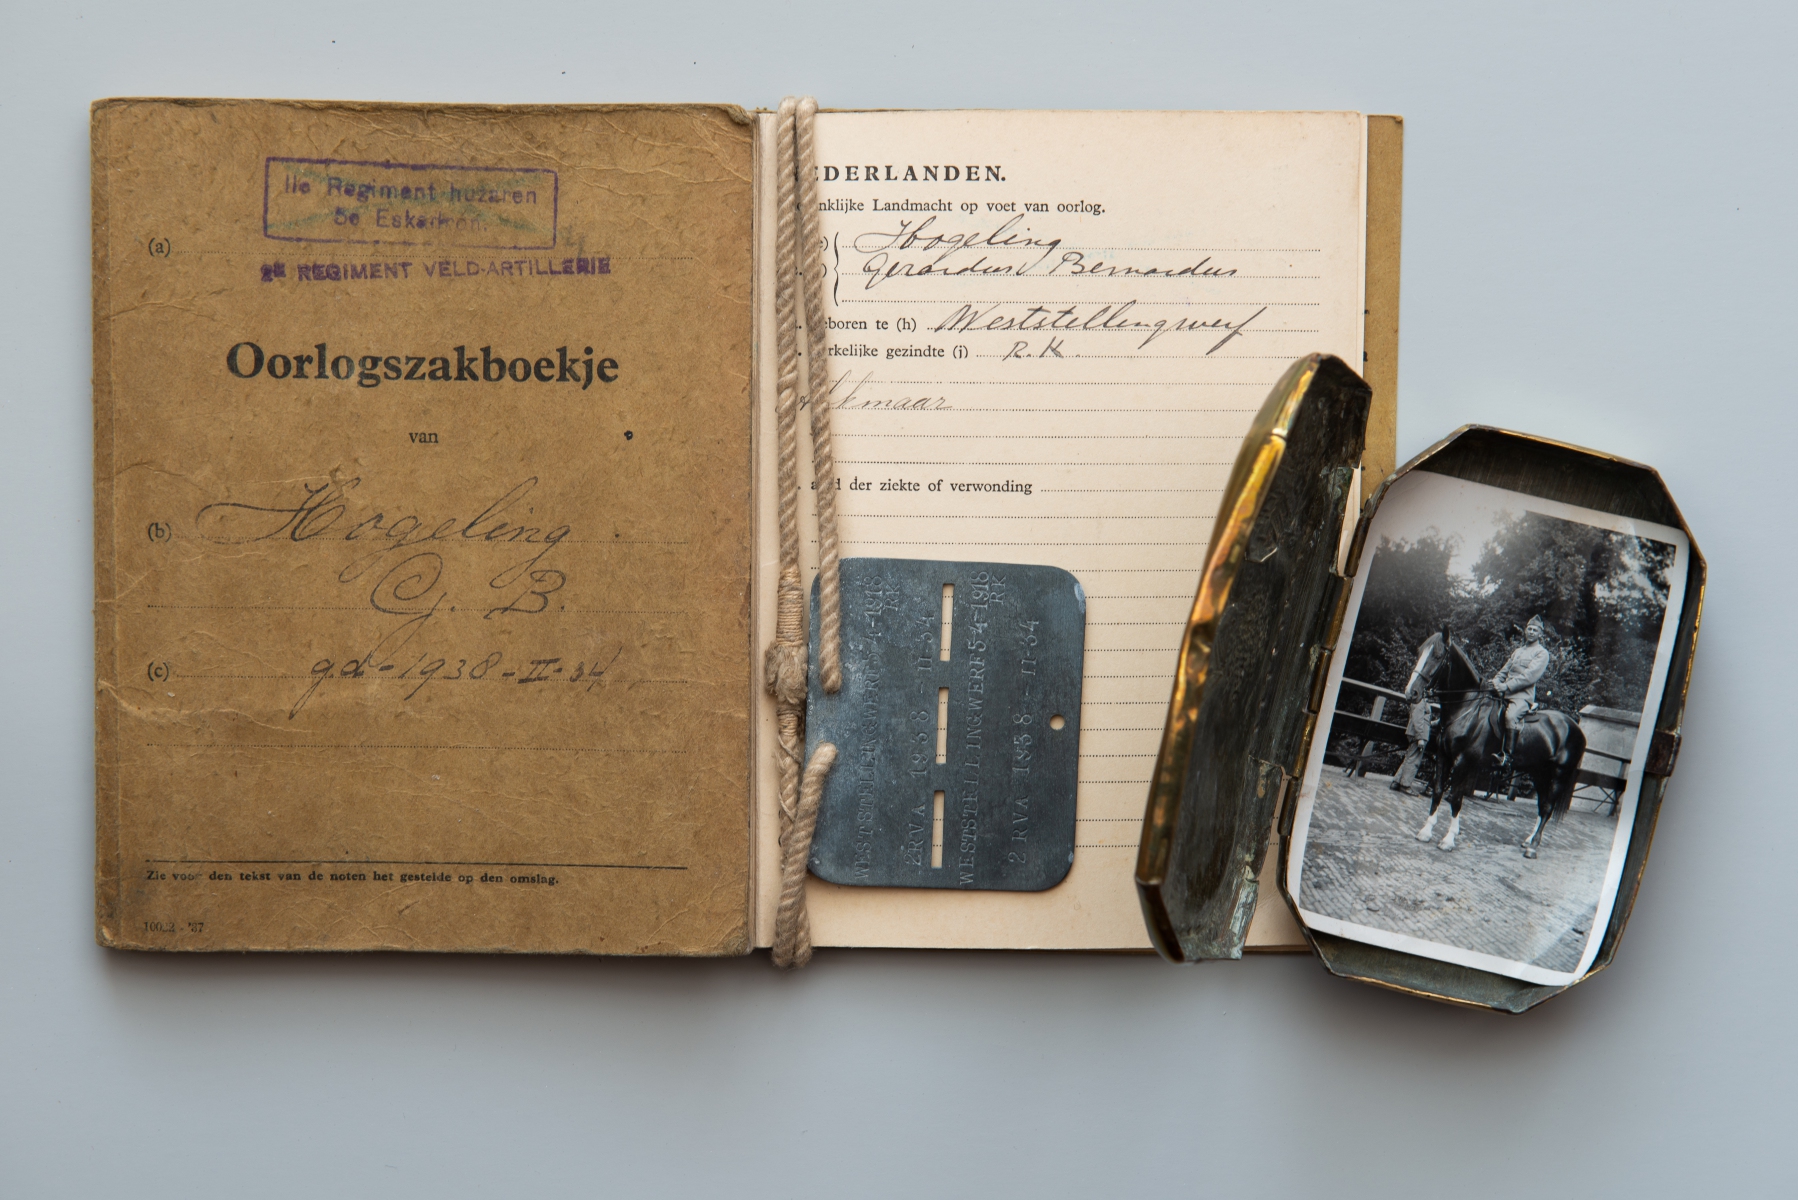 IIe Regiment huzaren
5e Eskadron.
(a)
2E REGIMENT VELD-ARTILLERIE
Oorlogszakboekje
van
(b) Hogeling
G. B.
(c) g.d - 1938 - II - 34
Zie voor den tekst van de noten het gestelde op den omslag.
EDERLANDEN.
nklijke Landmacht op voet van oorlog.
Hogeling
Gerardus Bernardus
boren te (h) Weststellingwerf
rkelijke gezindte (j) R.K.
Alkmaar
der ziekte of verwonding
WESTSTELLINGWERF 5-4-1918
RK
2RVA 1938 - II-34
WESTSTELLINGWERF 5-4-1918
RK
2 RVA 1938 - II-34